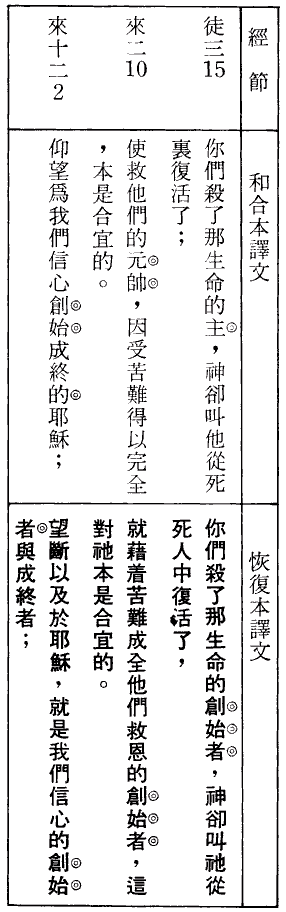 經節
和合本譯文
恢復本譯文
徒三15
你們殺了那生命的主，神卻叫他從死
裏復活了；
你們殺了那生命的創始者，神卻叫祂從
死人中復活了，
來二10
使救他們的元帥，因受苦難得以完全
，本是合宜的。
就藉着苦難成全他們救恩的創始者，這
對祂本是合宜的。
來十二2
仰望爲我們信心創始成終的耶穌；
望斷以及於耶穌，就是我們信心的創始
者與成終者；